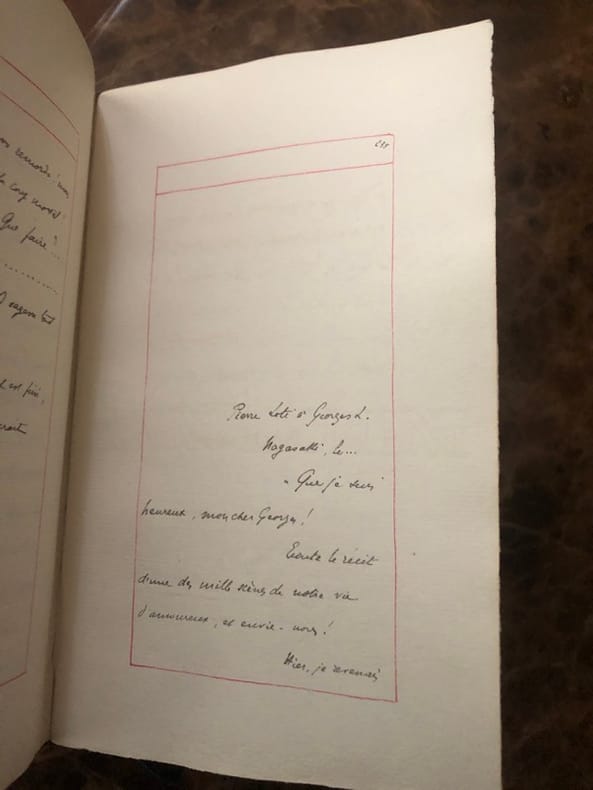 remords
Que faire ?
fini,
Pierre Loti à Georges L.
Nagasaki, le...
" Que je suis
heureux, mon cher Georges !
Ecoute le récit
d'une des mille scènes de notre vie
d'amoureux, et envie-nous !
Hier, je revenais